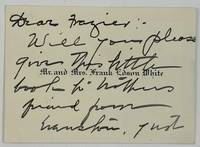 Dear Frazier:-
Will you please
give this little
Mr. and Mrs. Frank Edson White
book to mothers
friend from
Evanston, just